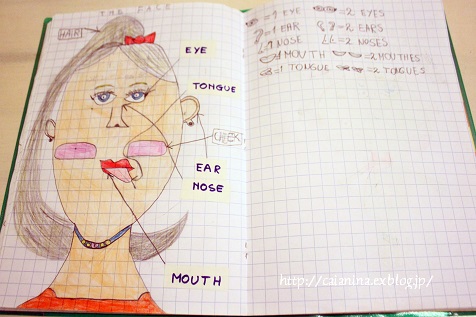 THE FACE
HAIR
EYE
TONGUE
CHEEK
EAR
NOSE
MOUTH
=1 EYE =2 EYES
=1 EAR =2 EARS
NOSE =2 NOSES
MOUTH =2 MOUTHES
=1 TONGUE =2 TOGUES
http://caiznina.exblog.jp/